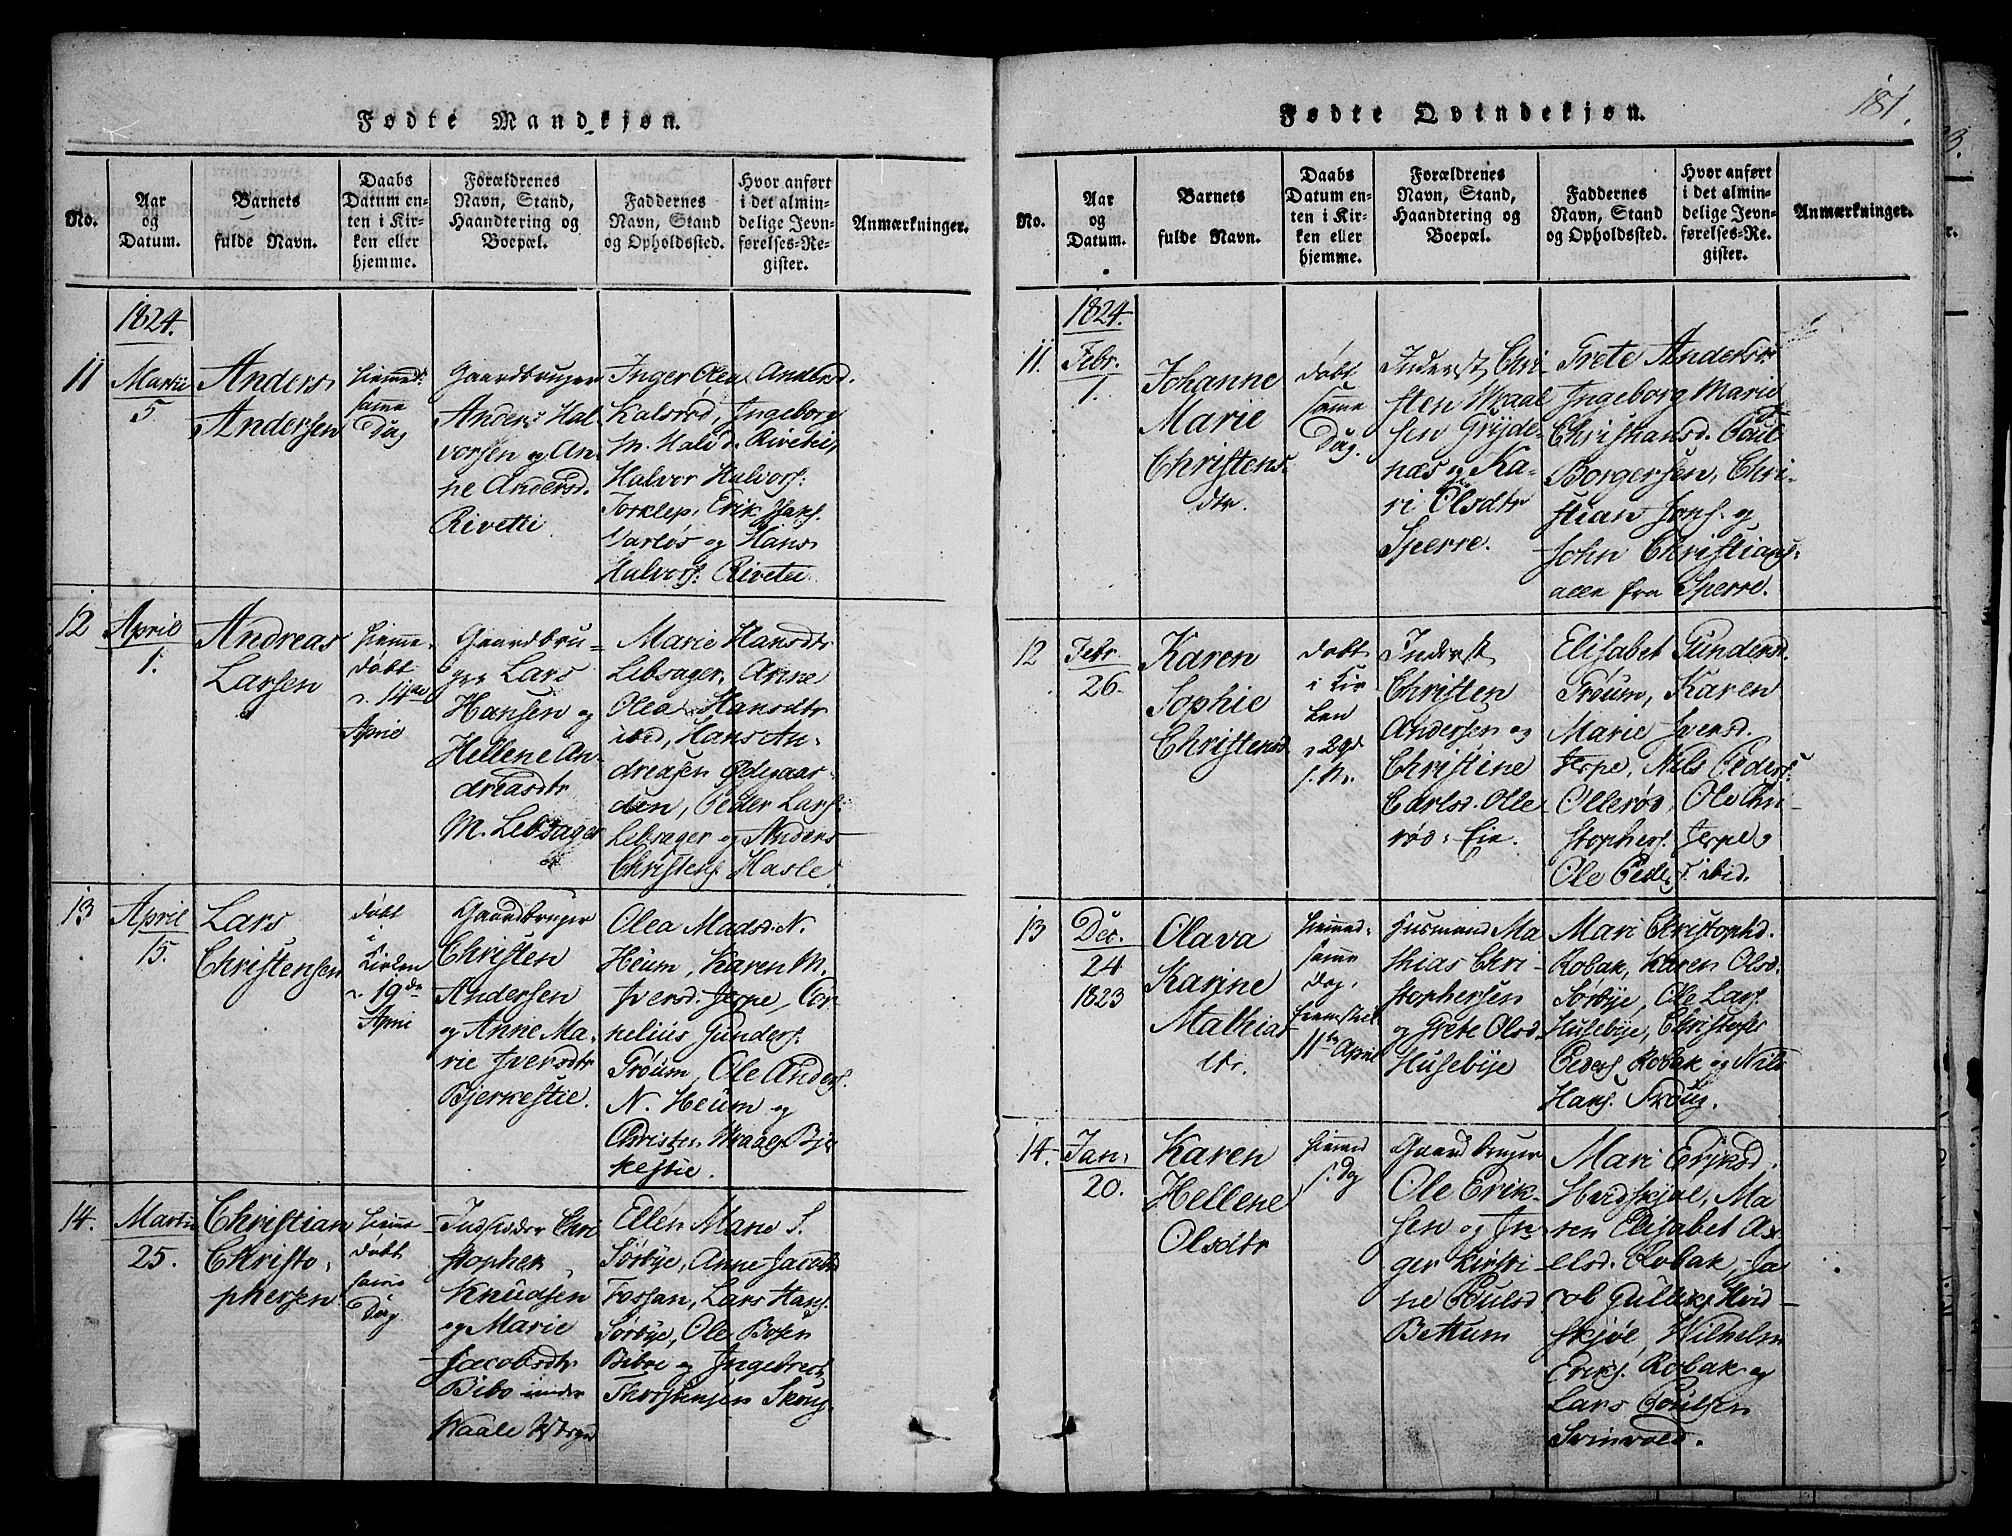 Fødte Mandkjøn.
No.
Aar
og
Datum.
Barnets
fulde Navn.
Daabs
Datum en-
ten i Kir-
ken eller
hjemme.
Forældrenes
Navn, Stand,
Haandtering og
Boepæl.
Faddernes
Navn, Stand
og Opholdssted.
Hvor anført
i det almin-
delige Jevn-
førelses-Re-
gister.
Anmærkninger.
1824.
11
Martii
5
Anders
Andersen
hiemmed:
samme
Dag
Gaardbruger
Anders Hal
vorsen og An-
ne Andersd.
Rivetii
Inger Olea Andersd.
Kalsrød, Ingeborg
M. Halvd. Rivetii,
Halvor Halvors:
Torklep, Erik Hans.
Varløs og Hans
Halvors: Rivetii
12
April
1.
Andreas
Larsen
hiemme-
døbt
d. 14de
April
Gaardbru-
ger Lars
Hansen og
Hellene An-
dreasdtr
M. Lebsager
Marie Hansdtr
Lebsager, Anne
Olea Hansdtr
ibid, Hans An-
dreasen Ødegaar-
den, Peder Lars:
Lebsager og Anders
Christens Hasle.
13
April
15.
Lars
Christensen
døbt
i
Kirken
d. 19de
April
Gaardbruger
Christen
Andersen
og Anne Ma-
rie Iversdtr
Bjerkestie.
Olea Madsd. N.
Heum, Karen M.
Iversd. Jerpe, Cor-
nelius Gunders.
Trøum, Ole Anders.
N. Heum og
Christen Wraals Bjer
kestie.
14.
Martii
25.
Christian
Christo-
phersen
hiemme
døbt
samme
Dag
Indsidder Chri
stopher
Knudsen
og Marie
Jacobsdtr
Bibo under
Waale
Ellen Marie S.
Sørbye, Anne Jacobsd
Fossan, Lars Hans.
Sørbye, Ole Bosen
Biboe og Ingebret
Thorstensen Skoug.
Fødte Qvindekjøn.
181.
No.
Aar
og
Datum.
Barnets
fulde Navn.
Daabs
Datum en-
ten i Kir-
ken eller
hjemme.
Forældrenes
Navn, Stand,
Haandtering og
Boepæl.
Faddernes
Navn, Stand
og Opholdssted.
Hvor anført
i det almin-
delige Jevn-
førelses-Re-
gister.
Anmærkninger.
1824.
11.
Febr.
1.
Johanne
Marie
Christens
dtr.
døbt
samme
Dag.
Inderst, Chri-
sten Wraal
sen Grijde-
næs og Ka-
ri Olsdtr
Sperre.
Grete Andersdr
Ingeborg Marie
Christiansd. Poul
Borgersen, Chri-
stian Jons. og
John Christians.
alle fra Sperre.
12
Febr.
26.
Karen
Sophie
Christensd
døbt
i Kir
ken
d. 29de
s. M.
Inderst
Christen
Andersen og
Christine
Carlsd. Olle
rød: Eie.
Elisabet Gundersd.
Trøum, Karen
Marie Iversd.
Jerpe, Niels Peders.
Ollerød, Ole Chri-
stophers. Jerpe,
Ole Peders. ibid.
13
Dec.
24
1823
Olava
Karine
Mathias
dtr.
hiemmed
samme
dag,
fremstillet
11te April
Huusmand Ma
thias Chri-
stophersen
og Grete Olsd.
Husebye
Mari Christophd.
Robak, Karen Olsd.
Sørbye, Ole Lars.
Husebye, Christopher
Peders. Robak og Nils
Hans. Troug.
14.
Jan.
20.
Karen
Hellene
Olsdtr
hiemmed
s. Dag
Gaardbruger
Ole Erik-
sen og In-
ger Kirsti-
ne Poulsd
Bettum
Mari Eriksd.
Hvidskjøl, Ma
ren Elisabet Ax-
elsd. Robak, Ja
cob Gulliks. Hvid-
skjøl, Wilhelm
Eriks. Robak og
Lars Poulsen
Svinvold.